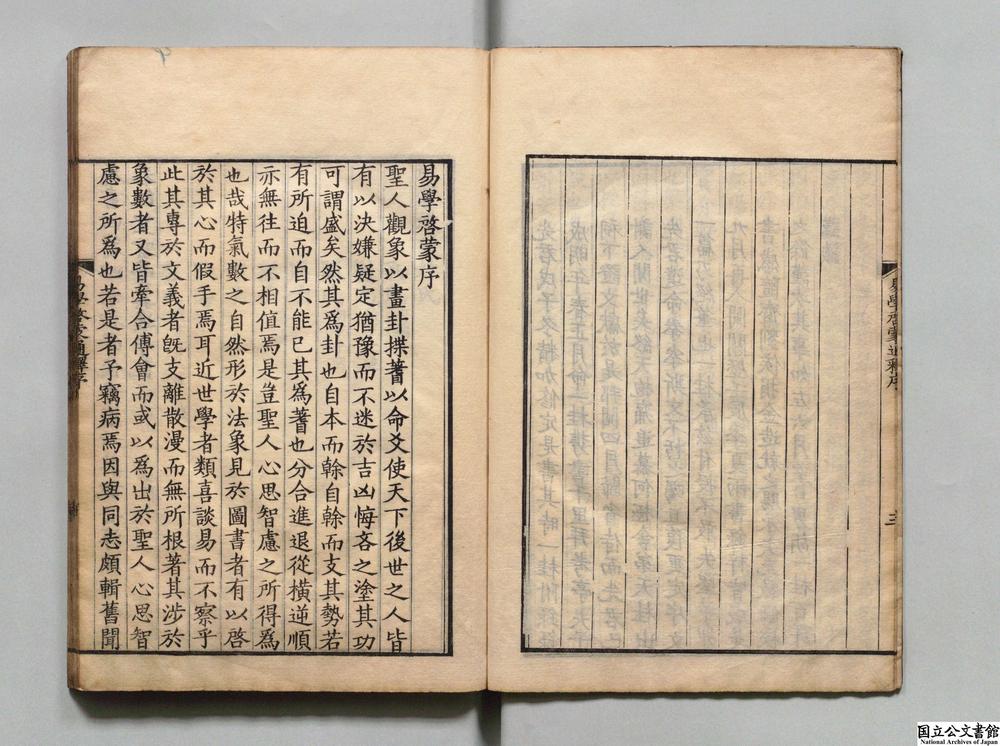 易學啓蒙通釋序
三
易學啓蒙序
聖人觀象以畫卦揲蓍以命爻使天下後世之人皆
有以決嫌疑定猶豫而不迷於吉凶悔吝之塗其功
可謂盛矣然其爲卦也自本而榦自榦而支其勢若
有所迫而自不能已其爲蓍也分合進退從橫逆順
亦無往而不相值焉是豈聖人心思智慮之所得爲
也哉特氣數之自然形於法象見於圖書者有以啓
於其心而假手焉耳近世學者類喜談易而不察乎
此其專於文義者旣支離散漫而無所根著其涉於
象數者又皆牽合傅會而或以爲出於聖人心思智
慮之所爲也若是者予竊病焉因與同志頗輯舊聞
易學啓蒙通釋序
国立公文書館
National Archives of Japan